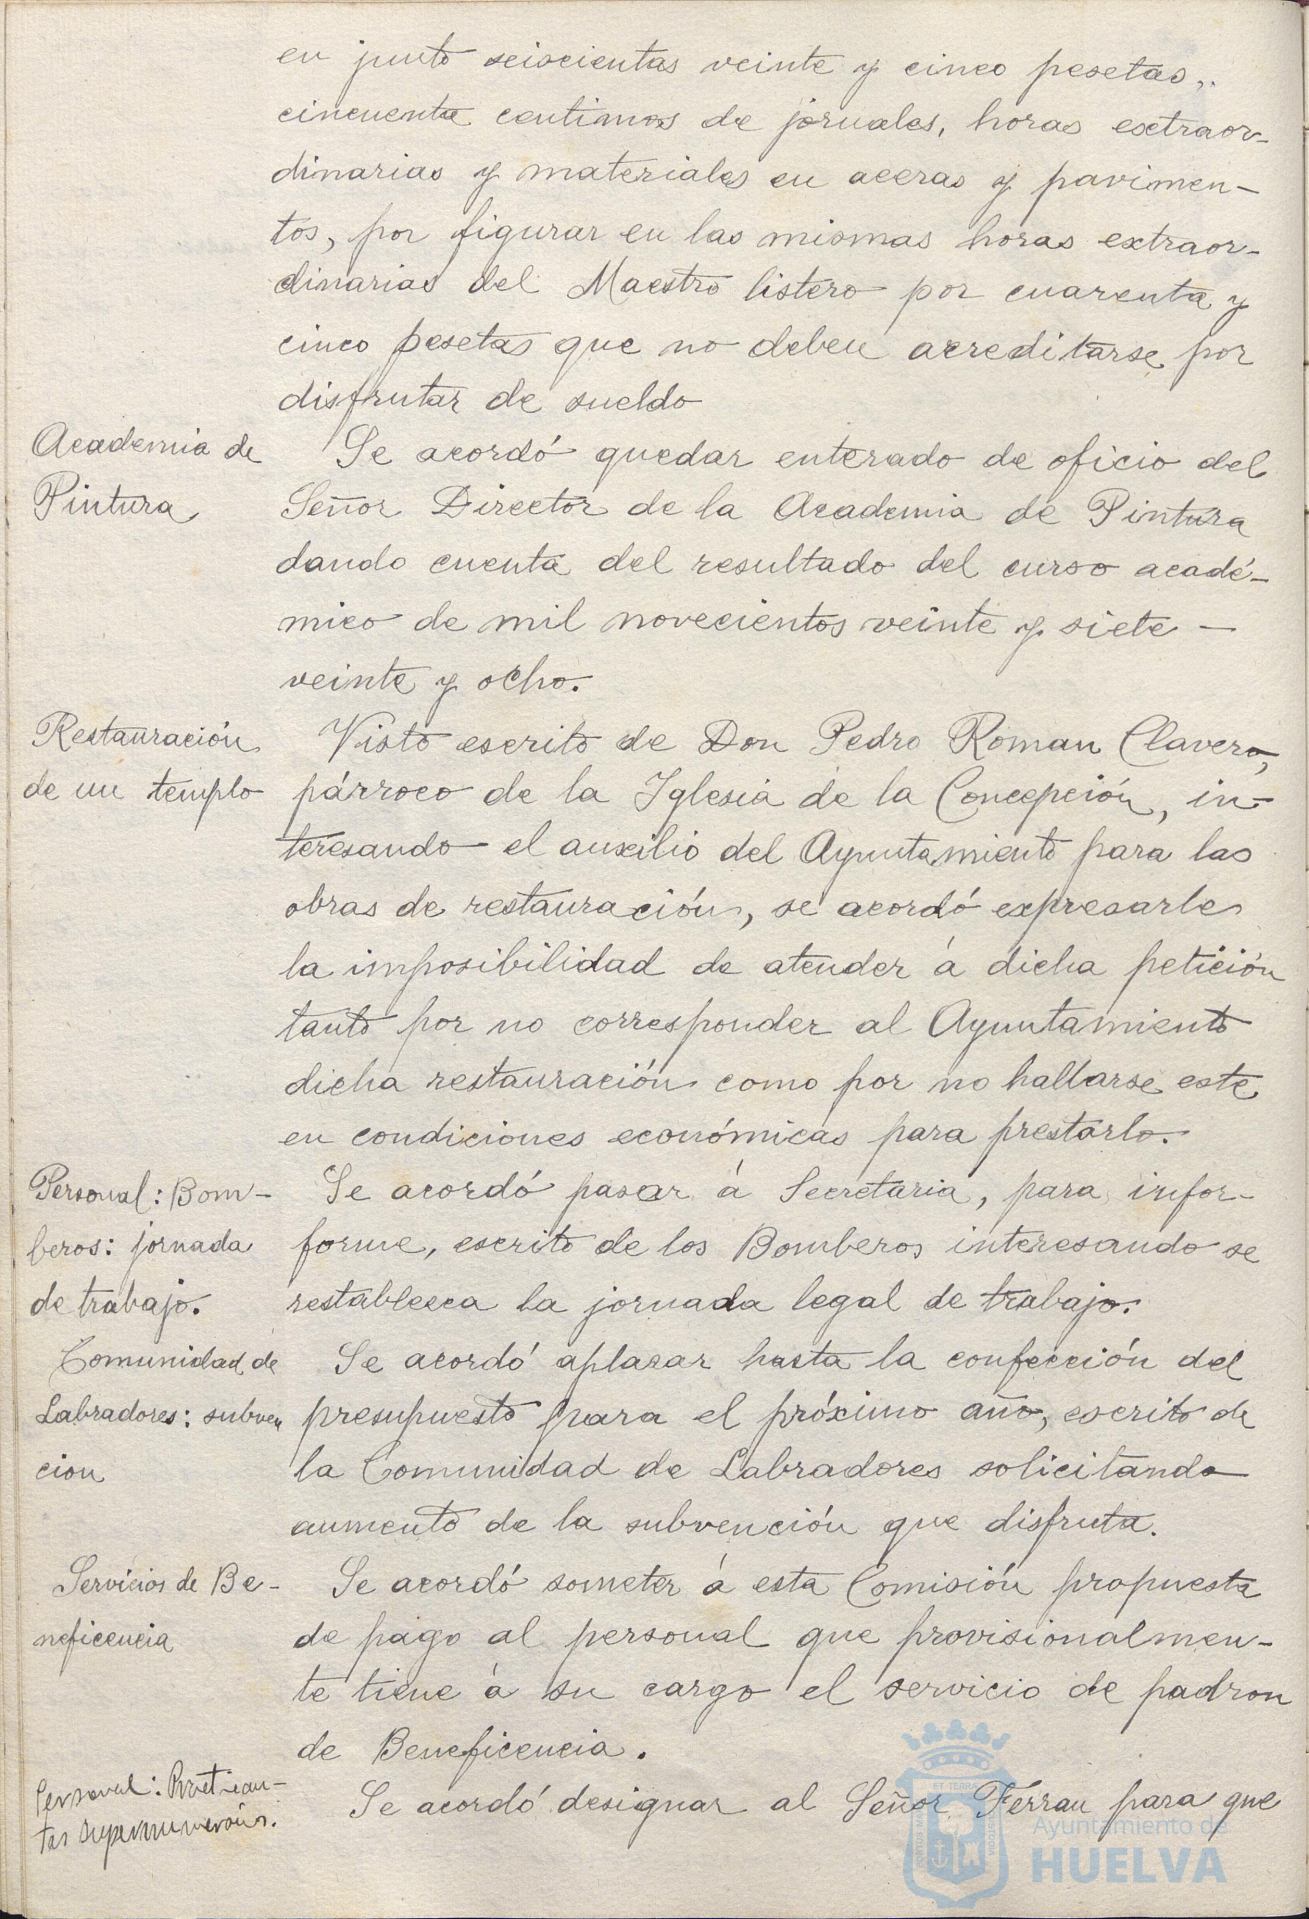 en junto seiscientas veinte y cinco pesetas,
cincuenta centimos de jornales, horas extraor-
dinarias y materiales en aceras y pavimen-
tos, por figurar en las mismas horas extraor-
dinarias del Maestro listero por cuarenta y
cinco pesetas que no deben acreditarse por
disfrutar de sueldo
Academia de
Pintura
Se acordó quedar enterado de oficio del
Señor Director de la Academia de Pintura
dando cuenta del resultado del curso acadé-
mico de mil novecientos veinte y siete -
veinte y ocho.
Restauración
de un templo
Visto escrito de Don Pedro Roman Clavero,
párroco de la Iglesia de la Concepción, in-
teresando el auxilio del Ayuntamiento para las
obras de restauración, se acordó expresarle
la imposibilidad de atender á dicha petición
tanto por no corresponder al Ayuntamiento
dicha restauración como por no hallarse este
en condiciones económicas para prestarlo.
Personal: Bom-
beros: jornada
de trabajo.
Se acordó pasar á Secretaria, para infor-
forme, escrito de los Bomberos interesando se
restablezca la jornada legal de trabajo.
Comunidad de
Labradores: subven
cion
Se acordó aplazar hasta la confección del
presupuesto para el próximo año, escrito de
la Comunidad de Labradores solicitando
aumento de la subvención que disfruta.
Servicios de Be-
neficencia
Se acordó someter á esta Comisión propuesta
de pago al personal que provisionalmen-
te tiene á su cargo el servicio de padron
de Beneficencia.
Personal: Practican-
tes supernumerarios.
Se acordó designar al Señor Terrau para que
Ayuntamiento de
HUELVA